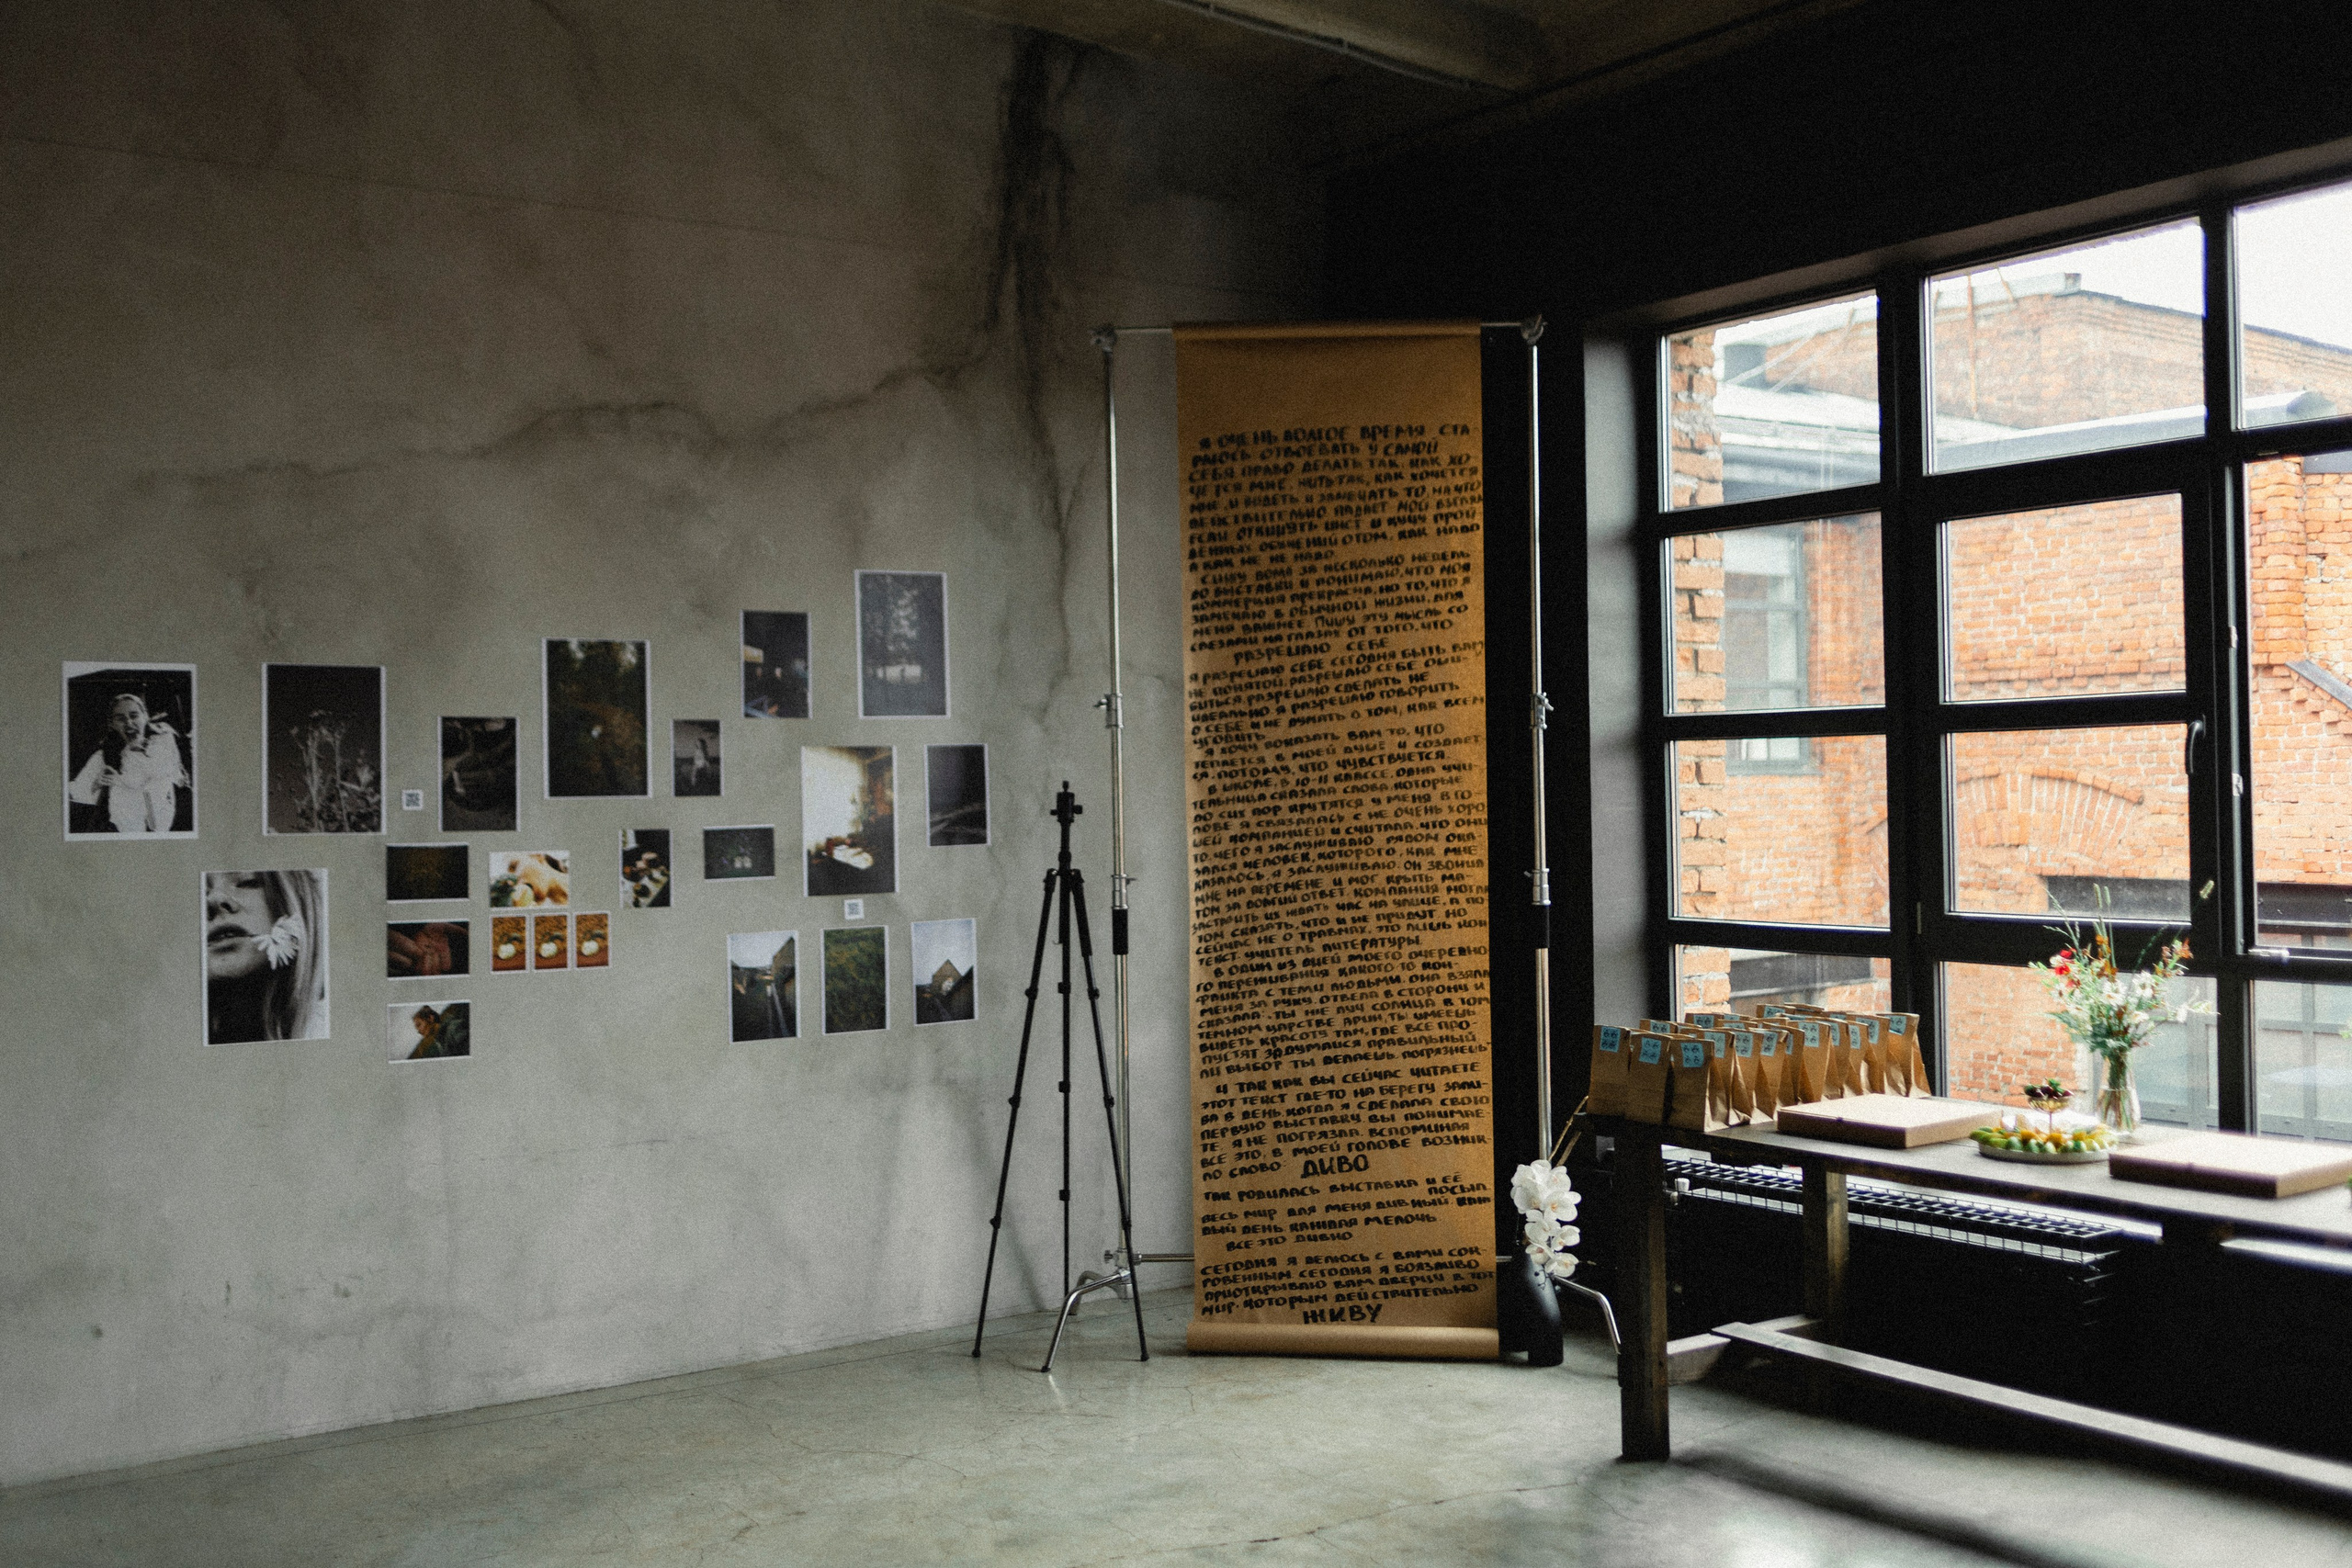 Я ОЧЕНЬ ДОЛГОЕ ВРЕМЯ СТА-
РАЮСЬ ОТВОЕВАТЬ У САМОЙ
СЕБЯ ПРАВО ДЕЛАТЬ ТАК, КАК ХО-
ЧЕТСЯ МНЕ, ЖИТЬ ТАК, КАК ХОЧЕТСЯ
МНЕ, И ВИДЕТЬ И ЗАМЕЧАТЬ ТО, НА ЧТО
ДЕЙСТВИТЕЛЬНО ПАДАЕТ МОЙ ВЗГЛЯД
ЕСЛИ ОТКИНУТЬ И КУЧУ ПРОЙ
ДЕННЫХ ОБУЧЕНИЙ О ТОМ, КАК НАДО
А КАК НЕ НЕ НАДО.
СИЖУ ДОМА ЗА НЕСКОЛЬКО НЕДЕЛЬ
ДО ВЫСТАВКИ И ПОНИМАЮ, ЧТО МОЯ
КОММЕРЦИЯ ПРЕКРАСНА, НО ТО, ЧТО Я
ЗАМЕЧАЮ В ОБЫЧНОЙ ЖИЗНИ, ДЛЯ
МЕНЯ ВАЖНЕЕ. ПИШУ ЭТУ МЫСЛЬ СО
СЛЕЗАМИ НА ГЛАЗАХ ОТ ТОГО, ЧТО
РАЗРЕШАЮ СЕБЕ
Я РАЗРЕШАЮ СЕБЕ СЕГОДНЯ БЫТЬ ВАМ
НЕ ПОНЯТОЙ, РАЗРЕШАЮ СЕБЕ ОШИ-
БИТЬСЯ, РАЗРЕШАЮ СДЕЛАТЬ НЕ
ИДЕАЛЬНО Я РАЗРЕШАЮ ГОВОРИТЬ
О СЕБЕ И НЕ ДУМАТЬ О ТОМ, КАК ВСЕМ
УГОДИТЬ
Я ХОЧУ ПОКАЗАТЬ ВАМ ТО, ЧТО
ТЕПЛЕТСЯ В МОЕЙ ДУШЕ И СОЗДАЕТ
СЯ, ПОТОМУ, ЧТО ЧУВСТВУЕТСЯ
В ШКОЛЕ, В 10-11 КЛАССЕ, ОДНА УЧИ-
ТЕЛЬНИЦА СКАЗАЛА СЛОВА, КОТОРЫЕ
ДО СИХ ПОР КРУТЯТСЯ У МЕНЯ В ГО
ЛОВЕ Я СВЯЗАЛАСЬ С НЕ ОЧЕНЬ ХОРО
ШЕЙ КОМПАНИЕЙ И СЧИТАЛА, ЧТО ОНИ
ТО, ЧЕГО Я ЗАСЛУЖИВАЮ РЯДОМ ОКА-
ЗАЛСЯ ЧЕЛОВЕК, КОТОРОГО, КАК МНЕ
КАЗАЛОСЬ, Я ЗАСЛУЖИВАЮ. ОН ЗВОНИЛ
МНЕ НА ПЕРЕМЕНЕ И МОГ КРЫТЬ МА-
ТОМ ЗА ДОЛГИЙ ОТВЕТ. КОМПАНИЯ МОГЛА
ЗАСТАВИТЬ ИХ ЖДАТЬ ЧАС НА УЛИЦЕ, А ПО
ТОМ СКАЗАТЬ, ЧТО И НЕ ПРИДУТ. НО
СЕЙЧАС НЕ О ТРАВМАХ, ЭТО ЛИШЬ КОН
ТЕКСТ. УЧИТЕЛЬ ЛИТЕРАТУРЫ.
В ОДИН ИЗ ДНЕЙ МОЕГО ОЧЕРЕДНО
ГО ПЕРЕЖИВАНИЯ КАКОГО-ТО КОН-
ФЛИКТА С ТЕМИ ЛЮДЬМИ, ОНА ВЗЯЛА
МЕНЯ ЗА РУКУ, ОТВЕЛА В СТОРОНУ И
СКАЗАЛА: ТЫ НЕ ЛУЧ СОЛНЦА В ТОМ
ТЕМНОМ ЦАРСТВЕ АРИН, ТЫ УМЕЕШЬ
ВИДЕТЬ КРАСОТУ ТАМ, ГДЕ ВСЕ ПРО-
ПУСТЯТ ЗАДУМАЙСЯ ПРАВИЛЬНЫЙ
ЛИ ВЫБОР ТЫ ДЕЛАЕШЬ. ПОГРЯЗНЕШЬ
И ТАК КАК ВЫ СЕЙЧАС ЧИТАЕТЕ
ЭТОТ ТЕКСТ ГДЕ-ТО НА БЕРЕГУ ЗАЛИ-
ВА В ДЕНЬ, КОГДА Я СДЕЛАЛА СВОЮ
ПЕРВУЮ ВЫСТАВКУ, ВЫ ПОНИМАЕ-
ТЕ, Я НЕ ПОГРЯЗЛА. ВСПОМИНАЯ
ВСЕ ЭТО, В МОЕЙ ГОЛОВЕ ВОЗНИК-
ЛО СЛОВО: ДИВО
ТАК РОДИЛАСЬ ВЫСТАВКА И ЕЁ
ПОСЫЛ.
ВЕСЬ МИР ДЛЯ МЕНЯ ДИВНЫЙ КАЖ
ДЫЙ ДЕНЬ КАЖДАЯ МЕЛОЧЬ
ВСЕ ЭТО ДИВНО
СЕГОДНЯ Я ДЕЛЮСЬ С ВАМИ СОК-
РОВЕННЫМ СЕГОДНЯ Я БОЯЗЛИВО
ПРИОТКРЫВАЮ ВАМ ДВЕРЦУ В ТОТ
МИР, КОТОРЫМ ДЕЙСТВИТЕЛЬНО
ЖИВУ